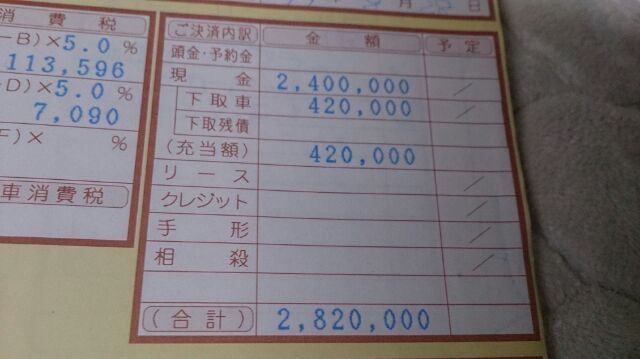 月 日
消費税
-B)×5.0%
113,596
-D)×5.0%
7,090
F)× %
車消費税
ご決済内訳 金額 予定
頭金・予約金
現金 2,400,000 /
下取車 420,000 /
下取残債
(充当額) 420,000
リース /
クレジット /
手形 /
相殺 /
(合計) 2,820,000